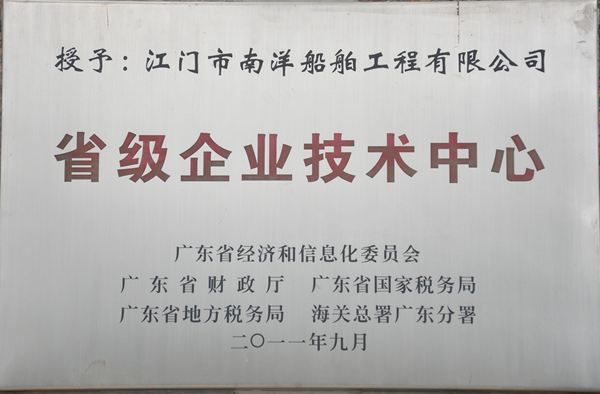 授予：江门市南洋船舶工程有限公司
省级企业技术中心
广东省经济和信息化委员会
广东省财政厅 广东省国家税务局
广东省地方税务局 海关总署广东分署
二〇一一年九月